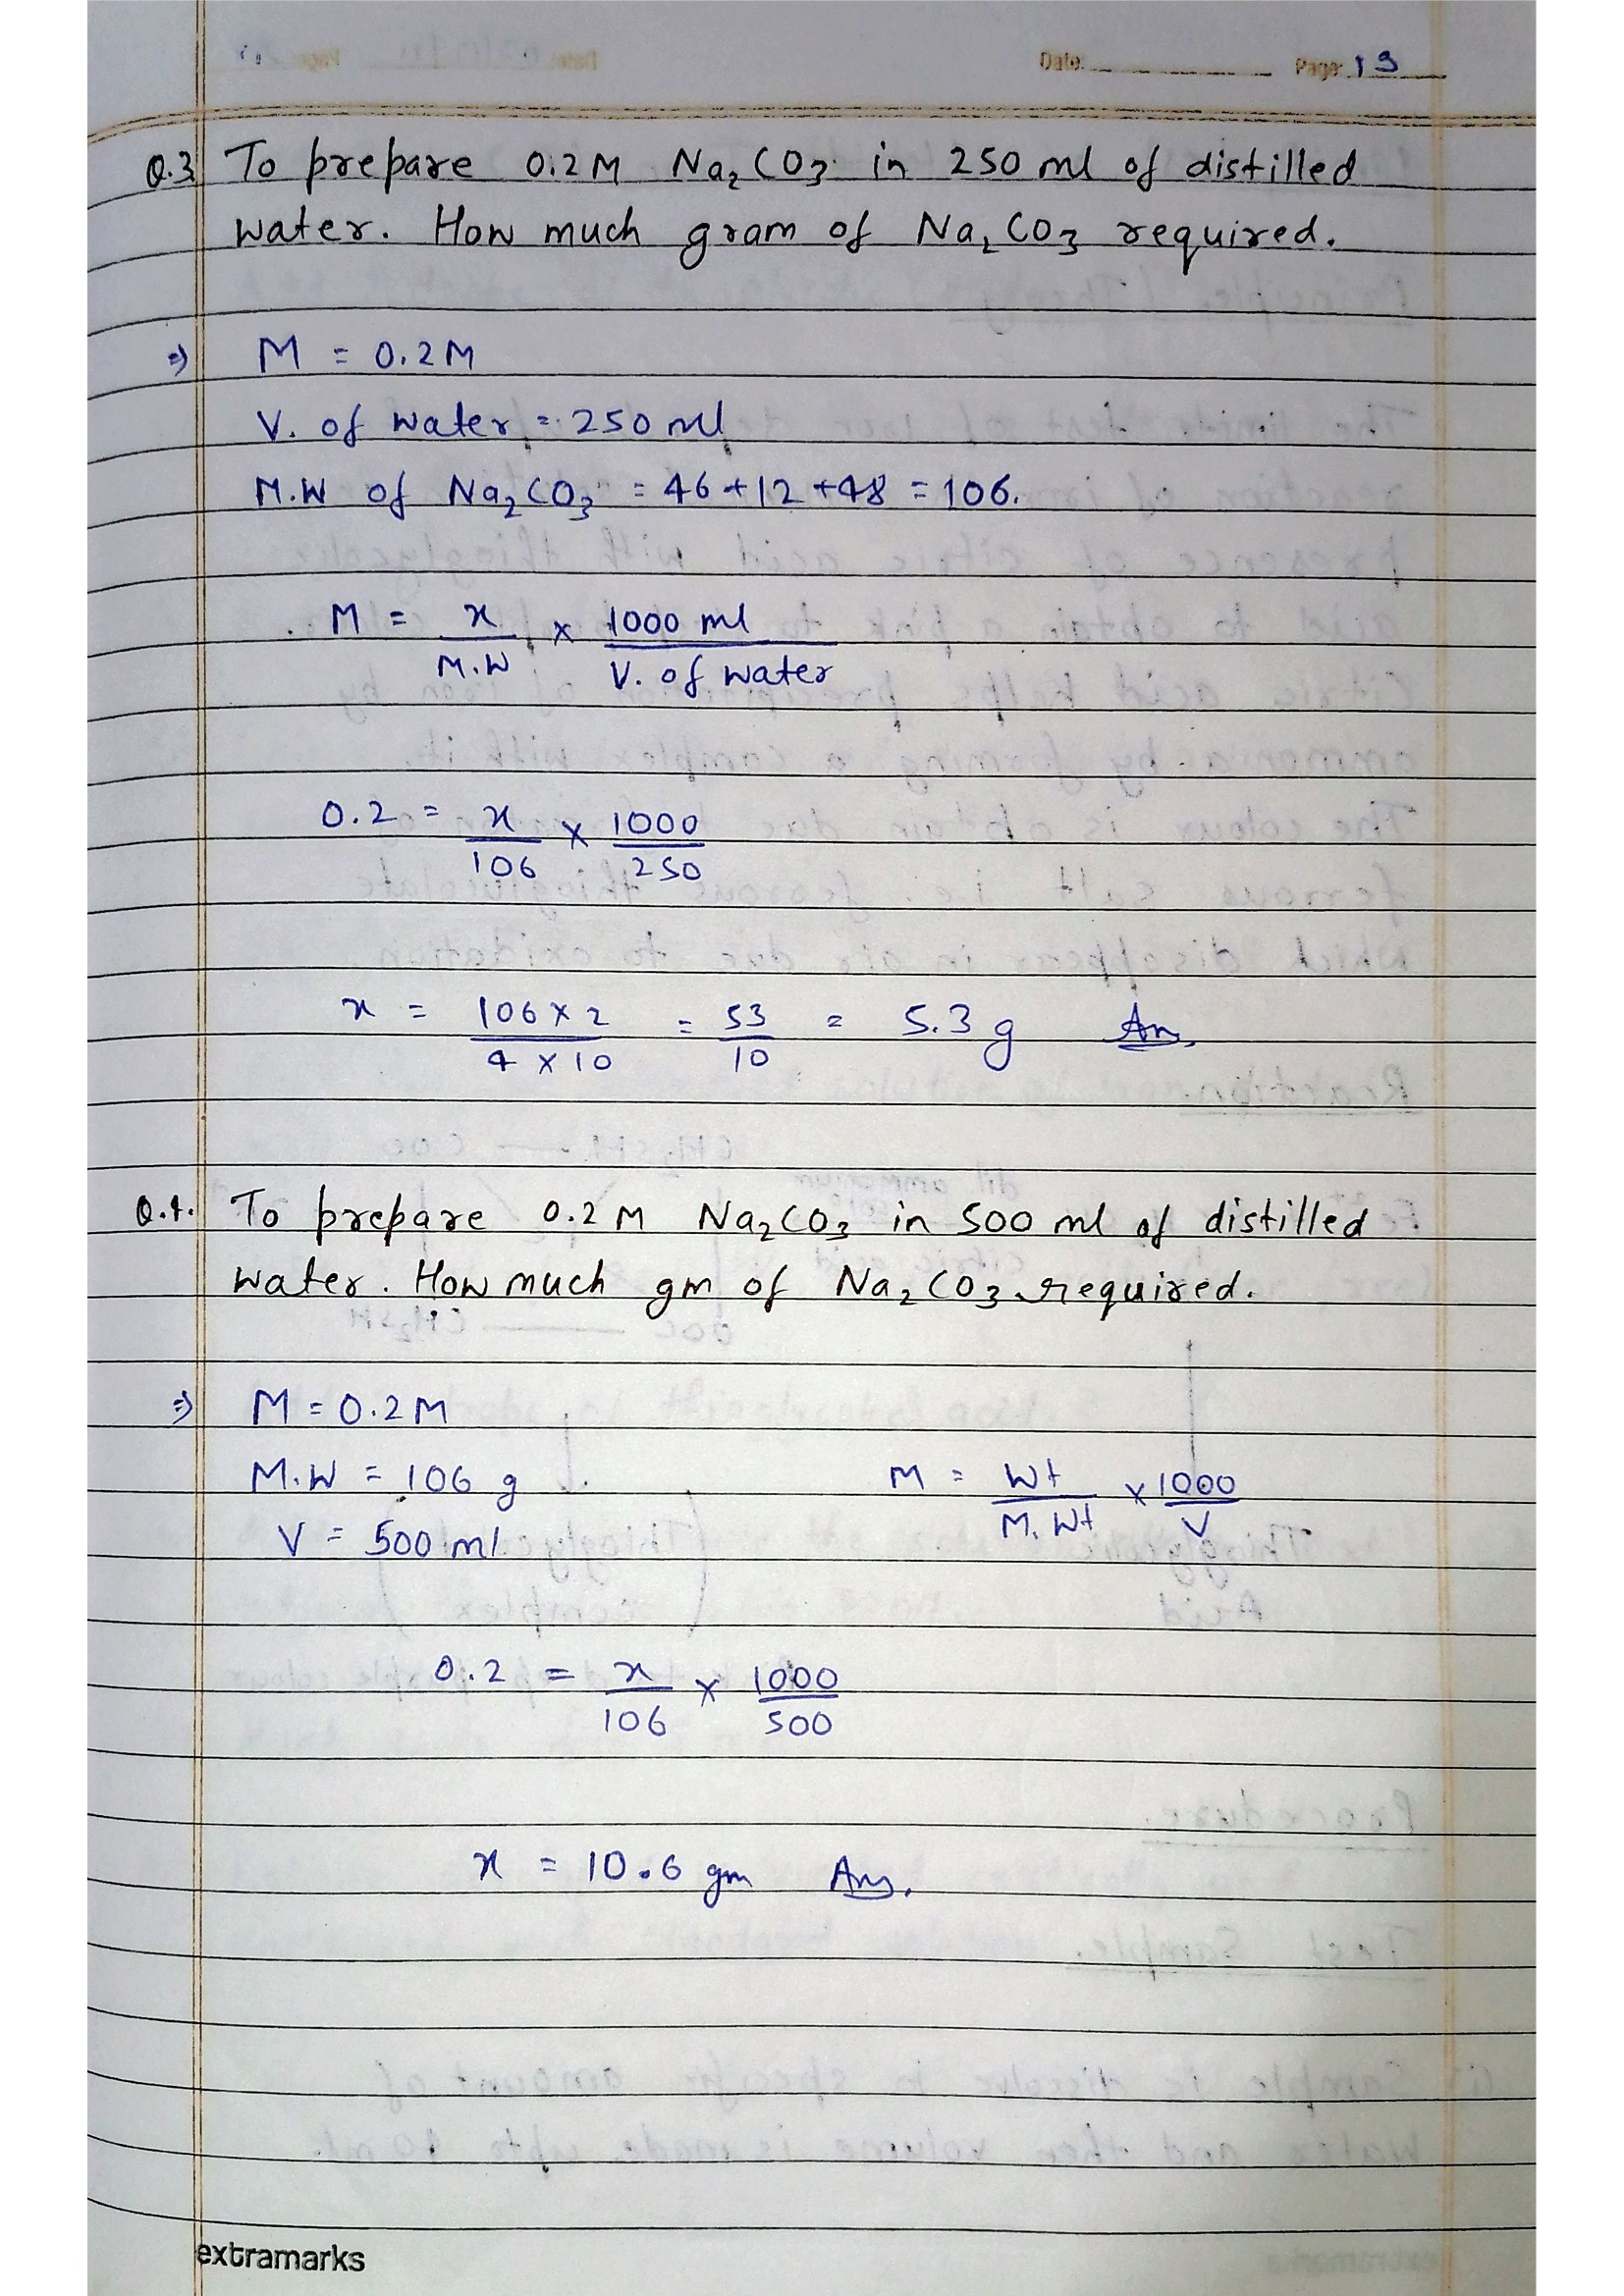 Date: Page: 13
Q.3 To prepare 0.2M Na₂CO₃ in 250 ml of distilled
water. How much gram of Na₂CO₃ required.
⇒ M = 0.2M
V. of water = 250 ml
M.W of Na₂CO₃ = 46+12+48 = 106.
M = x/M.W × 1000 ml/V. of water
0.2 = x/106 × 1000/250
x = 106×2/4×10 = 53/10 = 5.3 g Ans.
Q.4. To prepare 0.2M Na₂CO₃ in 500 ml of distilled
water. How much gm of Na₂CO₃ required.
⇒ M = 0.2M
M.W = 106 g M = Wt/M.Wt × 1000/V
V = 500 ml
0.2 = x/106 × 1000/500
x = 10.6 gm Ans.
extramarks